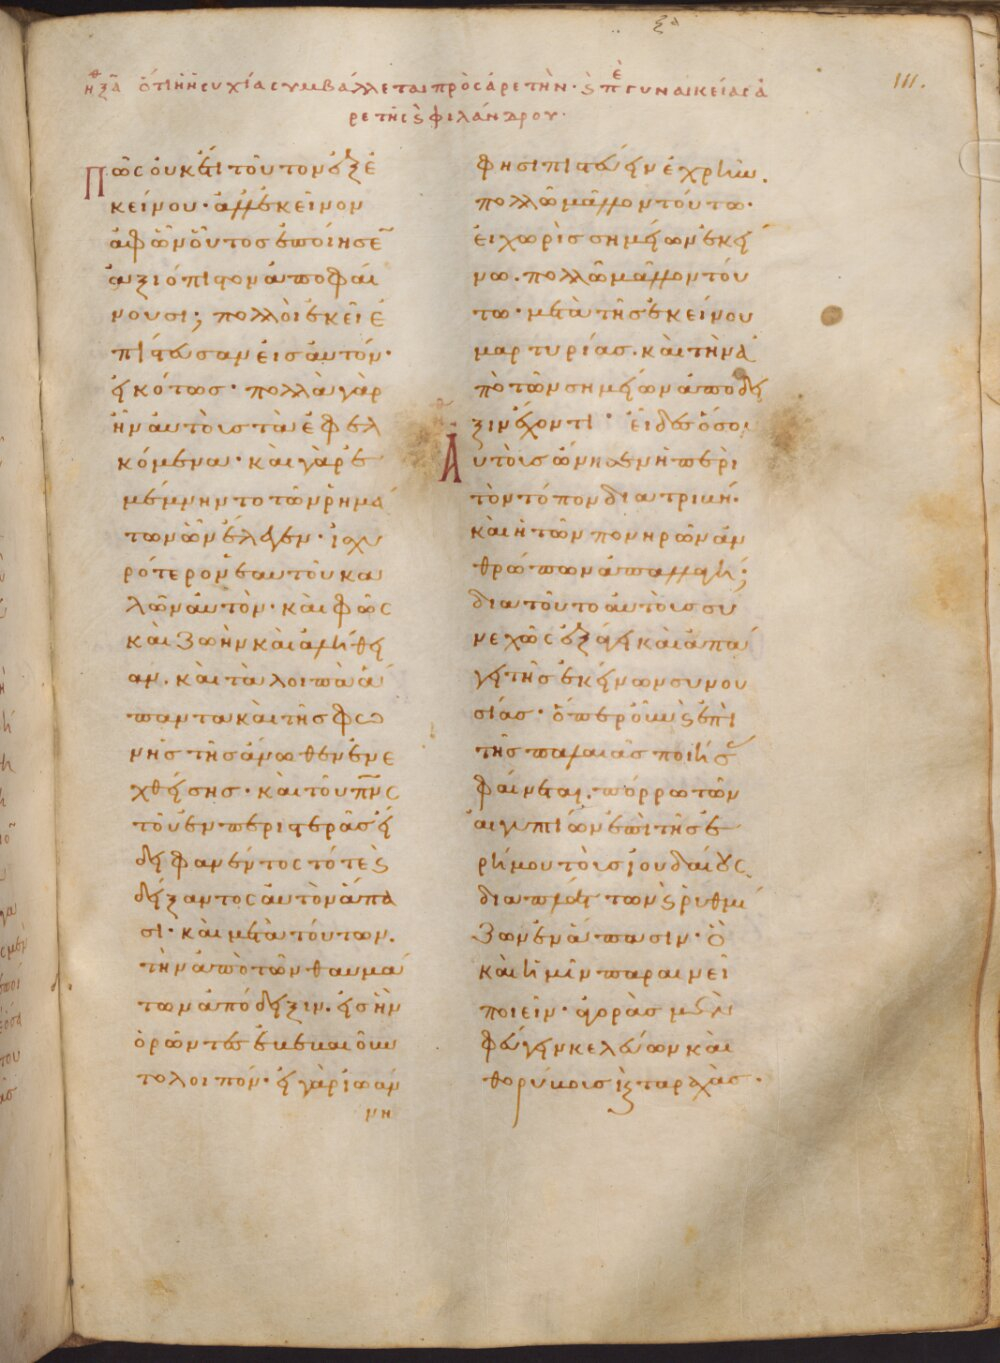 ξα
111.
ἠθ ξα ὅτι ἡ ἡσυχία συμβάλλεται πρὸς ἀρετήν· ϗ πε γυναικείας ἀ
ρετῆς ϗ φιλάνδρου·
Πῶς οὐκέτι τοῦτον ἐξ ἐ
κείνου· ἀλλ' ἐκεῖνον
ἀφ' ὧν οὗτος ἐποίησεν
ἀξιόπιστον ἀποφαί
νουσι; πολλοὶ ἐκεῖ ἐ
πίστευσαν εἰς αὐτόν·
εἰκότως· πολλὰ γὰρ
ἦν αὐτοῖς τὰ ἐφελ
κόμενα· καὶ γὰρ ἐ
μέμνηντο τῶν ῥημά
των ὧν ἔλεγεν· ἰσχυ
ρότερον ἑαυτοῦ κα
λῶν αὐτόν· καὶ φῶς
καὶ ζωὴν καὶ ἀλήθει
αν. καὶ τὰ λοιπὰ ἅ
παντα καὶ τῆς φω
νῆς τῆς ἄνωθεν ἐνε
χθείσης· καὶ τοῦ πνς
τοῦ ἐν περιστερᾶς εἴ
δει φανέντος τότε ϗ
δείξαντος αὐτὸν ἅπα
σι· καὶ μετὰ τούτων.
τὴν ἀπὸ τῶν θαυμά
των ἀπόδειξιν. εἰς ἣν
ὁρῶντες ἐβεβαιοῦν
το λοιπόν· εἰ γὰρ ἰωάν
νη
φησι πιστεύειν ἐχρῆν.
πολλῶ μᾶλλον τούτω·
εἰ χωρὶς σημείων ἐκεί
νω. πολλῶ μᾶλλον τού
τω· μετὰ τῆς ἐκείνου
μαρτυρίας. καὶ τὴν ἀ
πὸ τῶν σημείων ἀπόδει
ξιν ἔχοντι· εἶδες ὅσον
Αὐτοῖς ὤνησεν ἡ περὶ
τὸν τόπον διατριβή·
καὶ ἡ τῶν πονηρῶν ἀν
θρώπων ἀπαλλαγή;
διὰ τοῦτο αὐτοὺς συ
νεχῶς ἐξάγει καὶ ἀπά
γει τῆς ἐκείνων συνου
σίας· ὅπερ οὖν ϗ ἐπὶ
τῆς παλαιᾶς ποιήσας
φαίνεται. πόρρω τῶν
αἰγυπτίων ἐπὶ τῆς ἐ
ρήμου τοὺς ἰουδαίους
διαπλάττων ϗ ῥυθμί
ζων ἐν ἅπασιν· ὃ
καὶ ἡμῖν παραινεῖ
ποιεῖν· ἀγορὰς μὲν
φεύγειν κελεύων καὶ
θορύβους ϗ ταραχάς.